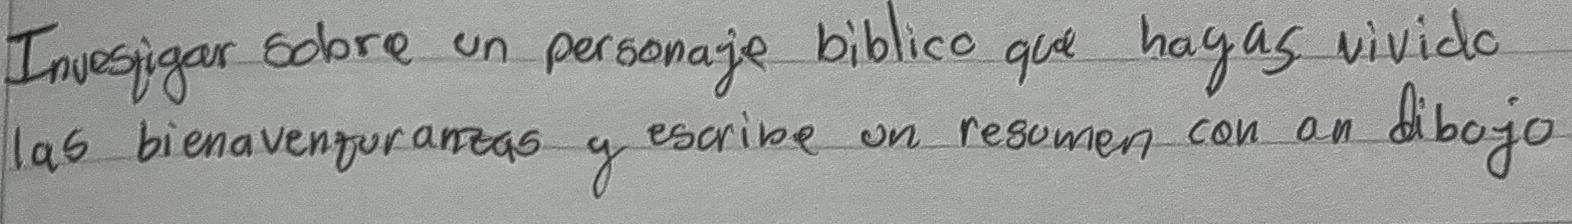 Investigar sobre un personaje biblico que hagas vivido
las bienaventuranzas y escribe un resumen con un dibojo